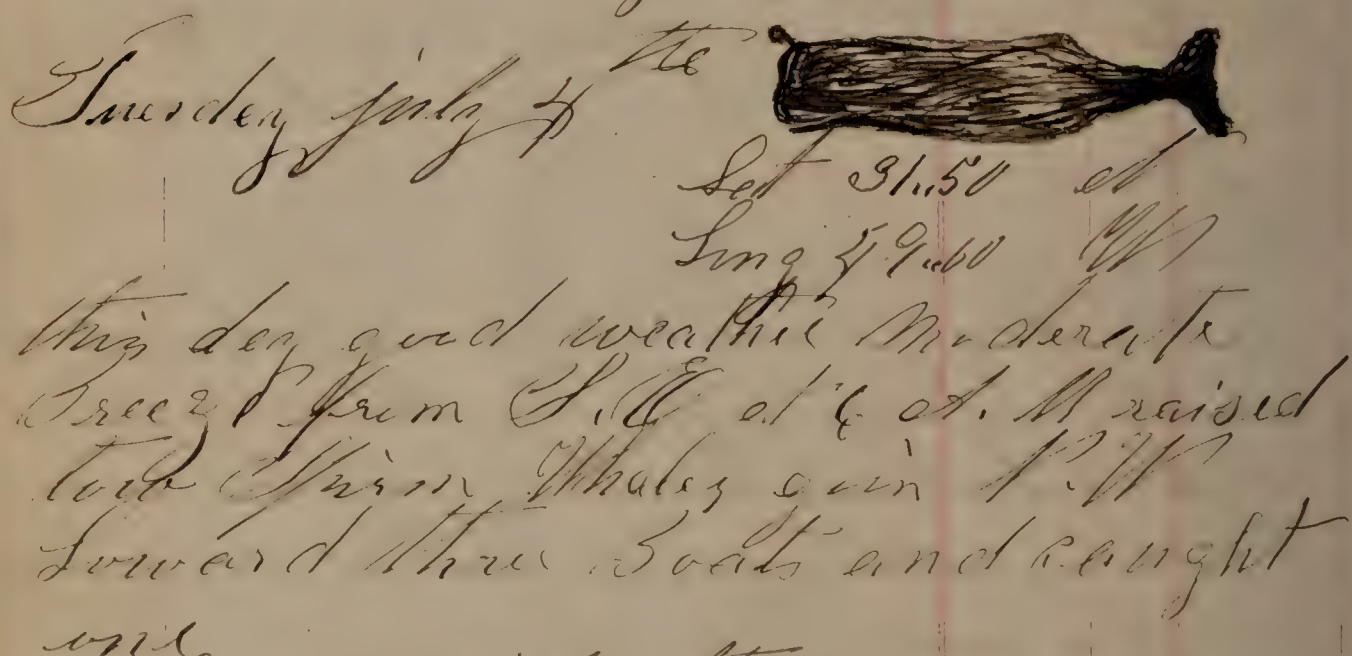 Tuesday july 4 the
Lat 31..50 N
Long 49..60 W
this day good weather Moderate
Breeze from S.E at 6 A.M raised
tow Spirm Whales goin S.W
Loward three Boats and caught
one